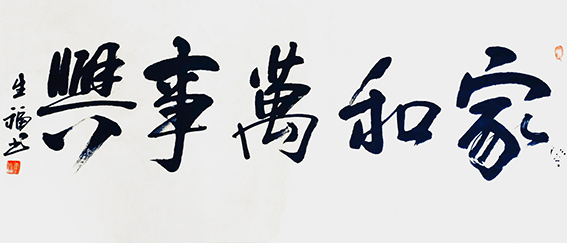 家和萬事興
生福书